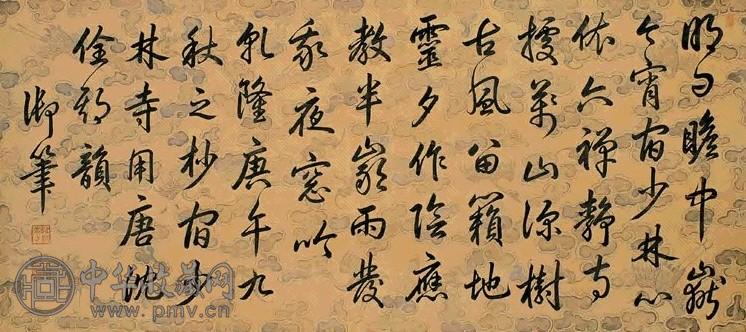 明日瞻中嶽
今宵宿少林心
依六禪靜寺
據萬山深樹
古風留籟地
靈夕作陰應
教半巖雨發
我夜窓吟
乾隆庚午九
秋之杪宿少
林寺用唐沈
佺期韻
御筆
中华收藏网
www.pmv.cn